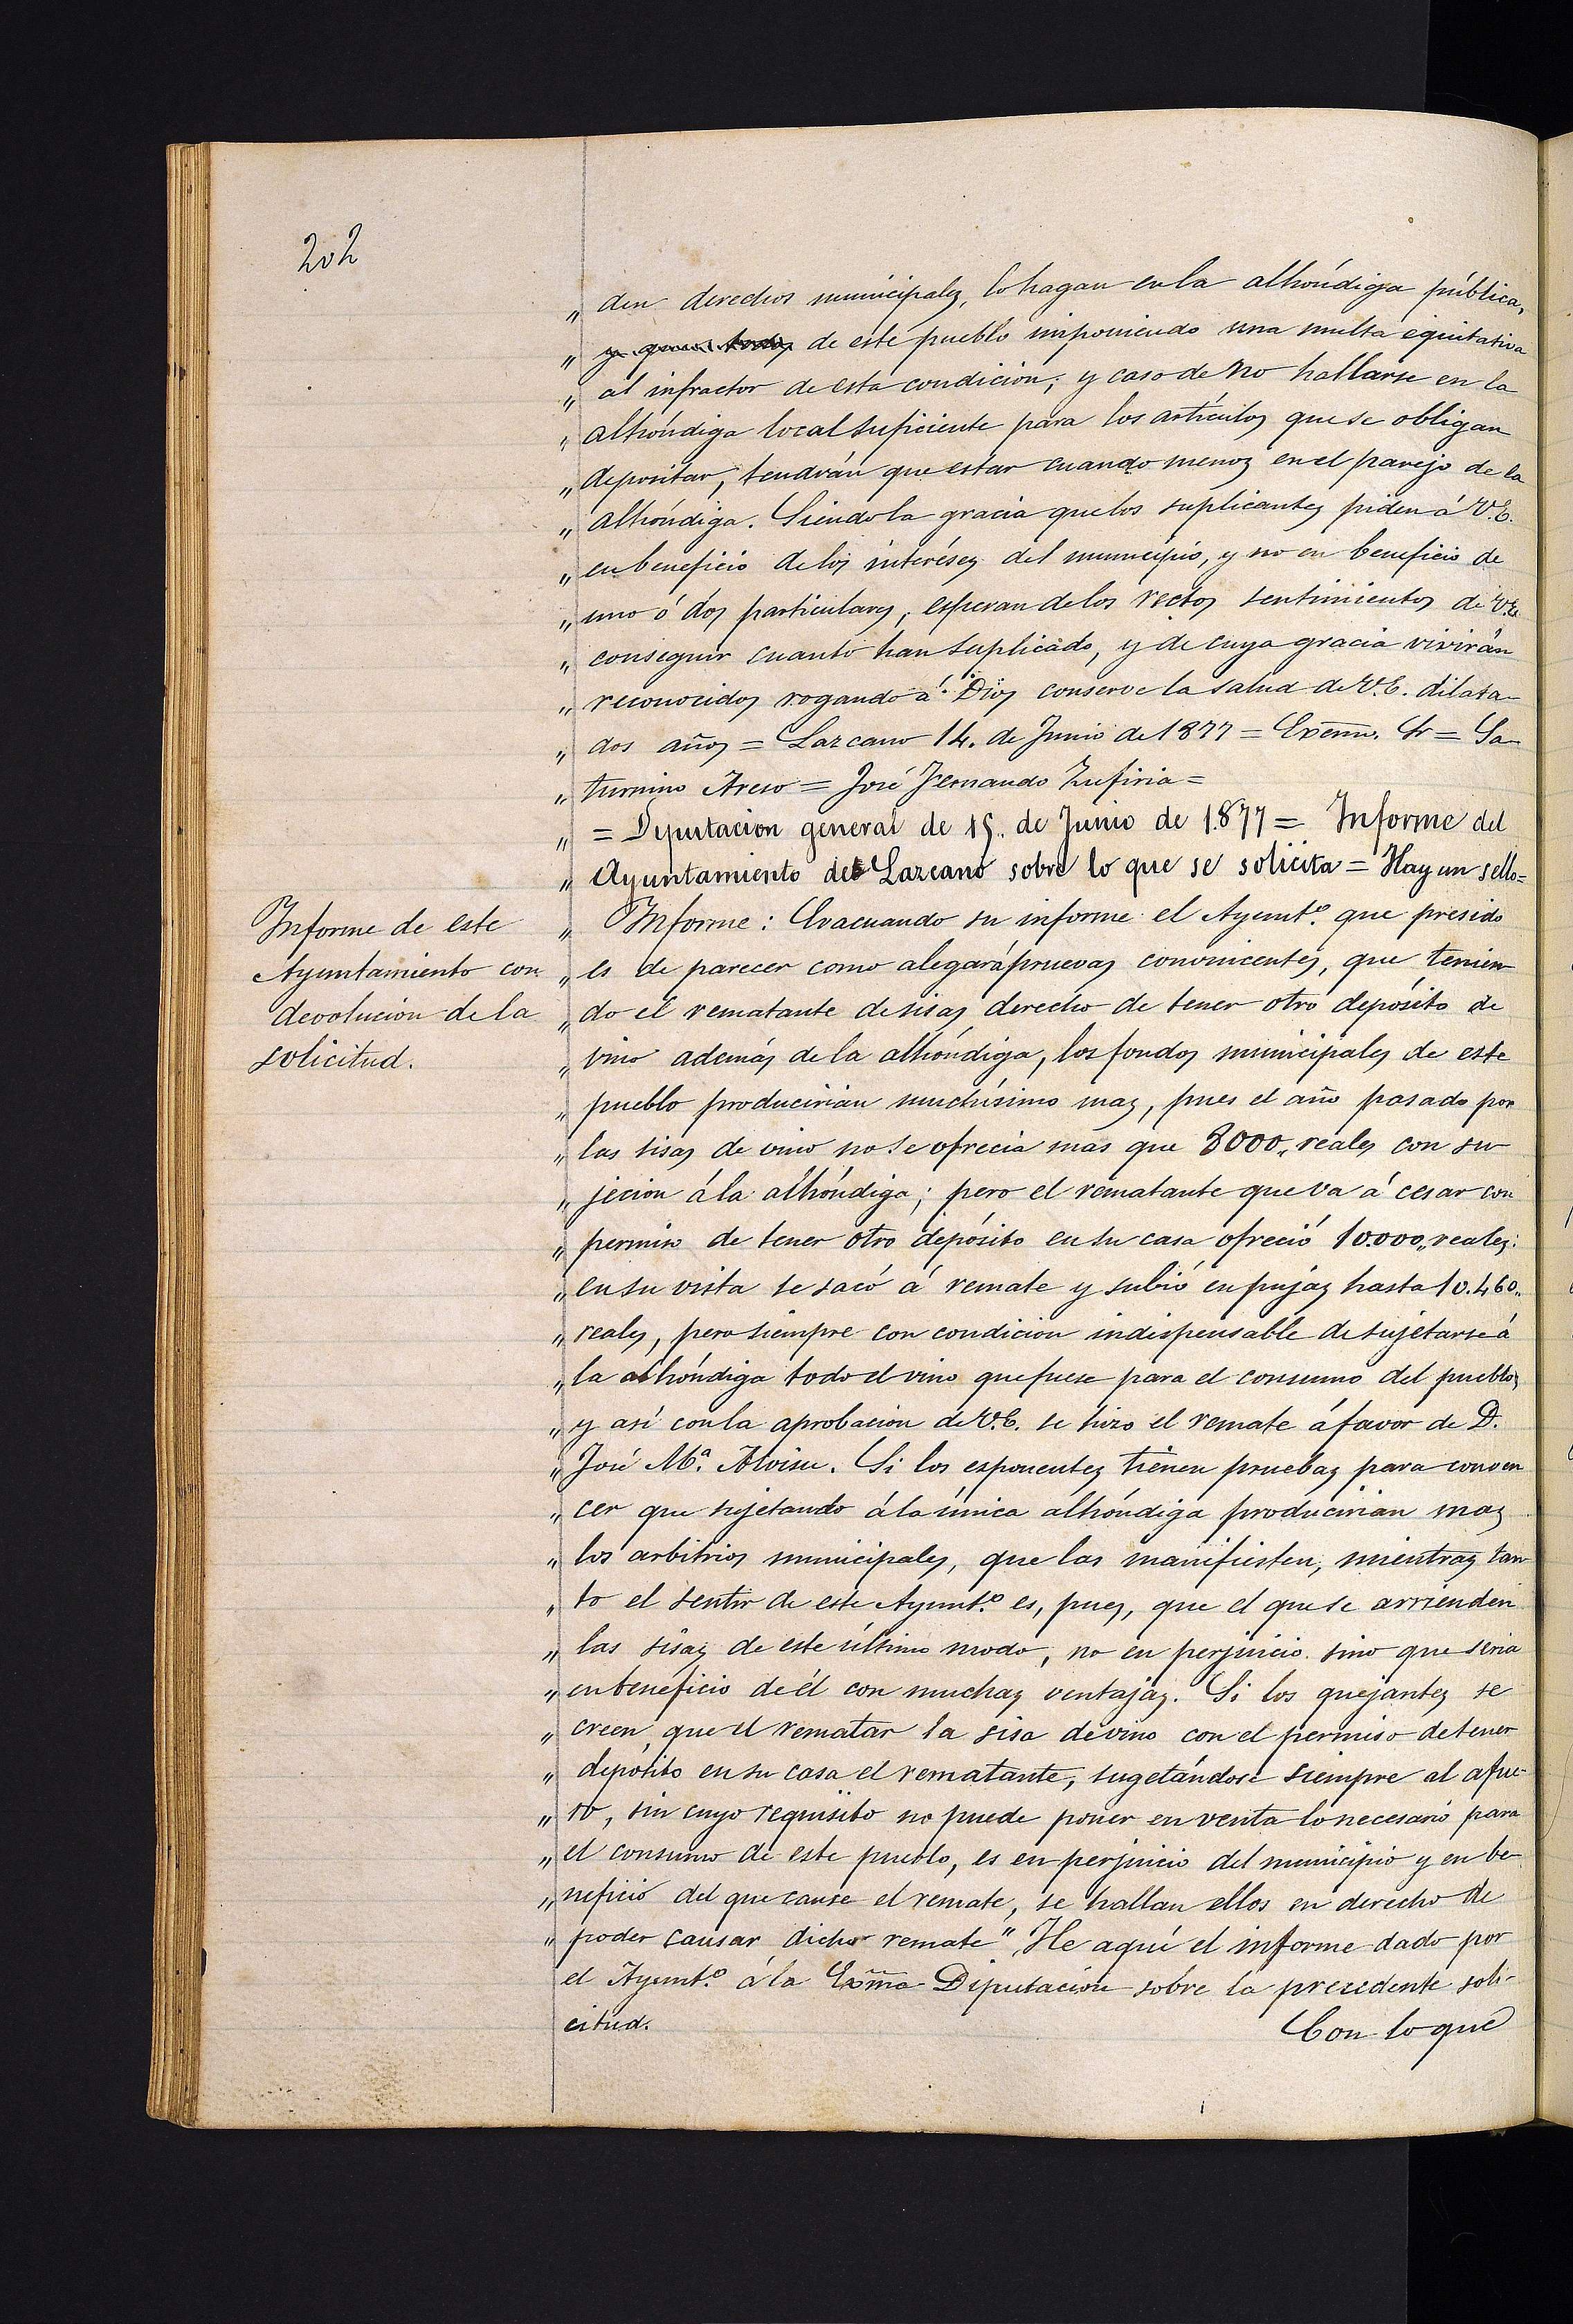 202
„ den derechos municipales, lo hagan en la alhóndiga pública,
„ y que todos de este pueblo imponiendo una multa equitativa
„ al infractor de esta condicion; y caso de no hallarse en la
„ alhóndiga local suficiente para los artículos que se obligan
„ depositar, tendrán que estar cuando menos en el parejo de la
„ alhóndiga. Siendo la gracia que los suplicantes piden á V.E.
„ en beneficio de los interéses del municipio, y no en beneficio de
„ uno ó dos particulares, esperan de los rectos sentimientos de V.E.
„ conseguir cuanto han suplicado, y de cuya gracia vivirán
„ reconocidos rogando á Dios conserve la salud de V.E. dilata-
„ dos años = Lazcano 14. de Junio de 1877 = Excmo. Sr = Sa-
„ turnino Areso = José Fernando Zufiria =
„ = Diputacion general de 15. de Junio de 1.877 = Informe del
„ Ayuntamiento de Lazcano sobre lo que se solicita = Hay un sello=
Informe de este
Ayuntamiento con
devolucion de la
solicitud.
„ Informe: Evacuando su informe el Ayunt.º que presido
„ es de parecer como alegará pruevas convincentes, que tenien-
„ do el rematante de sisas derecho de tener otro depósito de
„ vino además de la alhóndiga, los fondos municipales de este
„ pueblo producirian muchísimo mas, pues el año pasado por
„ las sisas de vino no se ofrecia mas que 8000„ reales con su-
„ jecion á la alhóndiga; pero el rematante que va á cesar con
„ permiso de tener otro depósito en su casa ofreció 10.000„ reales:
„ en su vista se sacó á remate y subió en pujas hasta 10.460„
„ reales, pero siempre con condicion indispensable de sujetarse á
„ la alhóndiga todo el vino que fuese para el consumo del pueblo,
„ y así con la aprobacion de V.E. se hizo el remate á favor de D.
„ José M.ª Aloisu. Si los esponentes tienen pruebas para conven
„ cer que sujetando á la única alhóndiga producirian mas
„ los arbitrios municipales, que las manifiesten, mientras tan-
„ to el sentir de este Ayunt.º es, pues, que el que se arrienden
„ las sisas de este último modo, no en perjuicio sino que seria
„ en beneficio de él con muchas ventajas. Si los quejantes se
„ creen, que el rematar la sisa de vino con el permiso de tener
„ depósito en su casa el rematante, sugetándose siempre al afue-
„ ro, sin cuyo requisito no puede poner en venta lo necesario para
„ el consumo de este pueblo, es en perjuicio del municipio y en be-
„ neficio del que cause el remate, se hallan ellos en derecho de
„ poder causar dicho remate" He aquí el informe dado por
el Ayunt.º á la Exma Diputacion sobre la precedente soli-
citud.
Con lo que